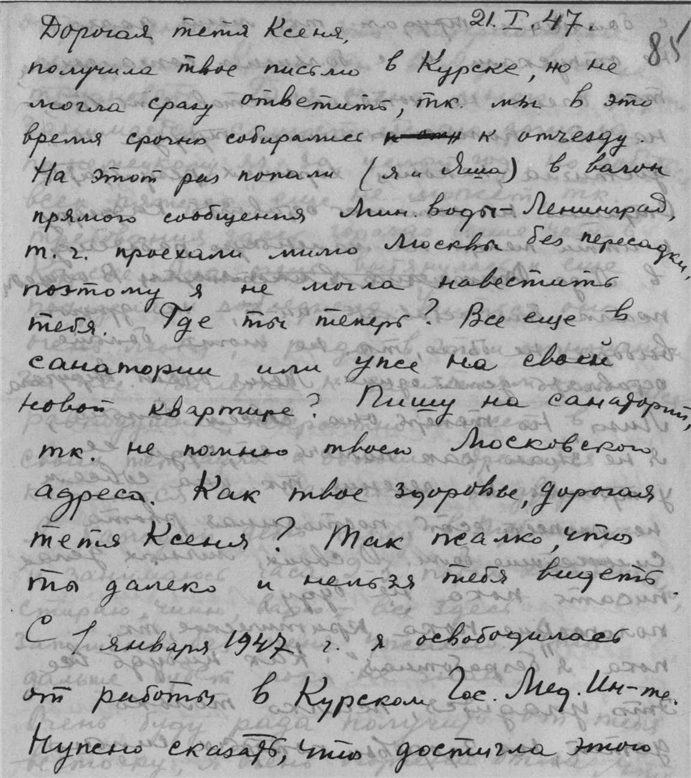 21.I.47.
85
Дорогая тетя Ксеня,
получила твое письмо в Курске, но не
могла сразу ответить, тк. мы в это
время срочно собирались к отъезду.
На этот раз попали (я и Яша) в вагон
прямого сообщения Мин. воды-Ленинград,
т. ч. проехали мимо Москвы без пересадки,
поэтому я не могла навестить
тебя. Где ты теперь? Все еще в
санатории или уже на своей
новой квартире? Пишу на санаторий,
тк. не помню твоего Московского
адреса. Как твое здоровье, дорогая
тетя Ксеня? Так жалко, что
ты далеко и нельзя тебя видеть.
С 1 января 1947 г. я освободилась
от работы в Курском Гос. Мед. Ин-те.
Нужно сказать, что достигла этого